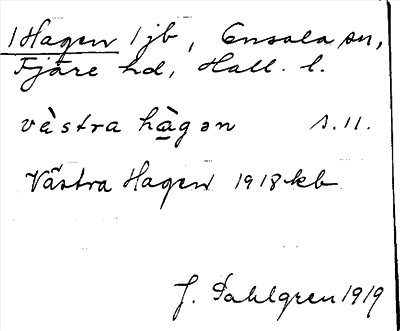 1 Hagen 1 jb, Onsala sn,
Fjäre hd, Hall. l.
vàstra hàgən s. 11.
Västra Hagen 1918 kb
J. Dahlgren 1919